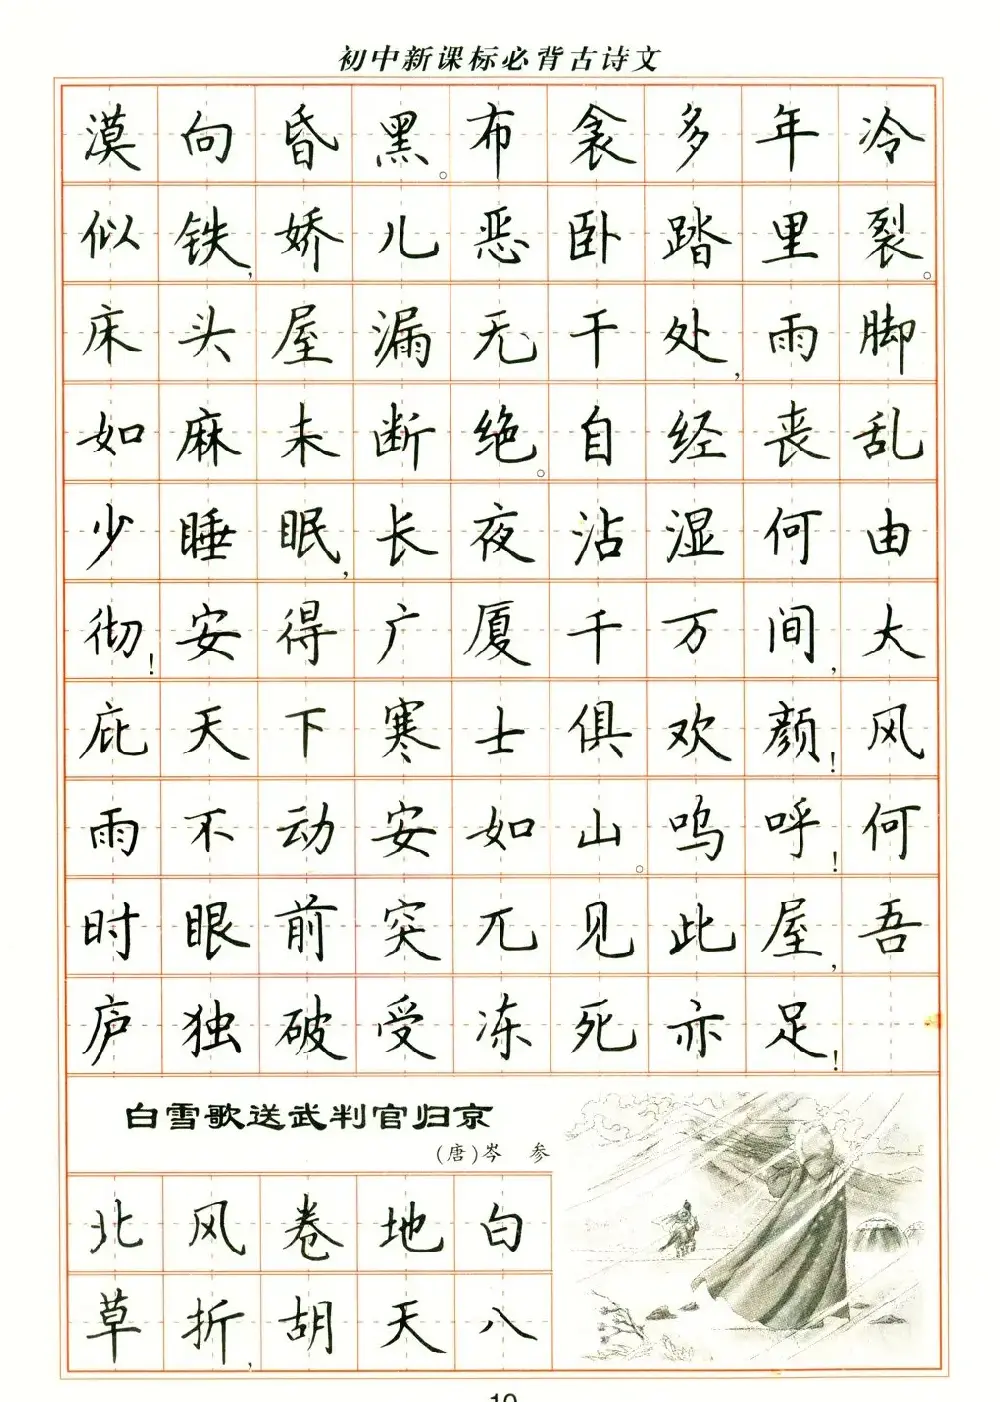 初中新课标必背古诗文
漠向昏黑。布衾多年冷
似铁,娇儿恶卧踏里裂。
床头屋漏无干处,雨脚
如麻未断绝。自经丧乱
少睡眠,长夜沾湿何由
彻!安得广厦千万间,大
庇天下寒士俱欢颜!风
雨不动安如山。呜呼!何
时眼前突兀见此屋,吾
庐独破受冻死亦足!
白雪歌送武判官归京
(唐)岑 参
北风卷地白
草折,胡天八